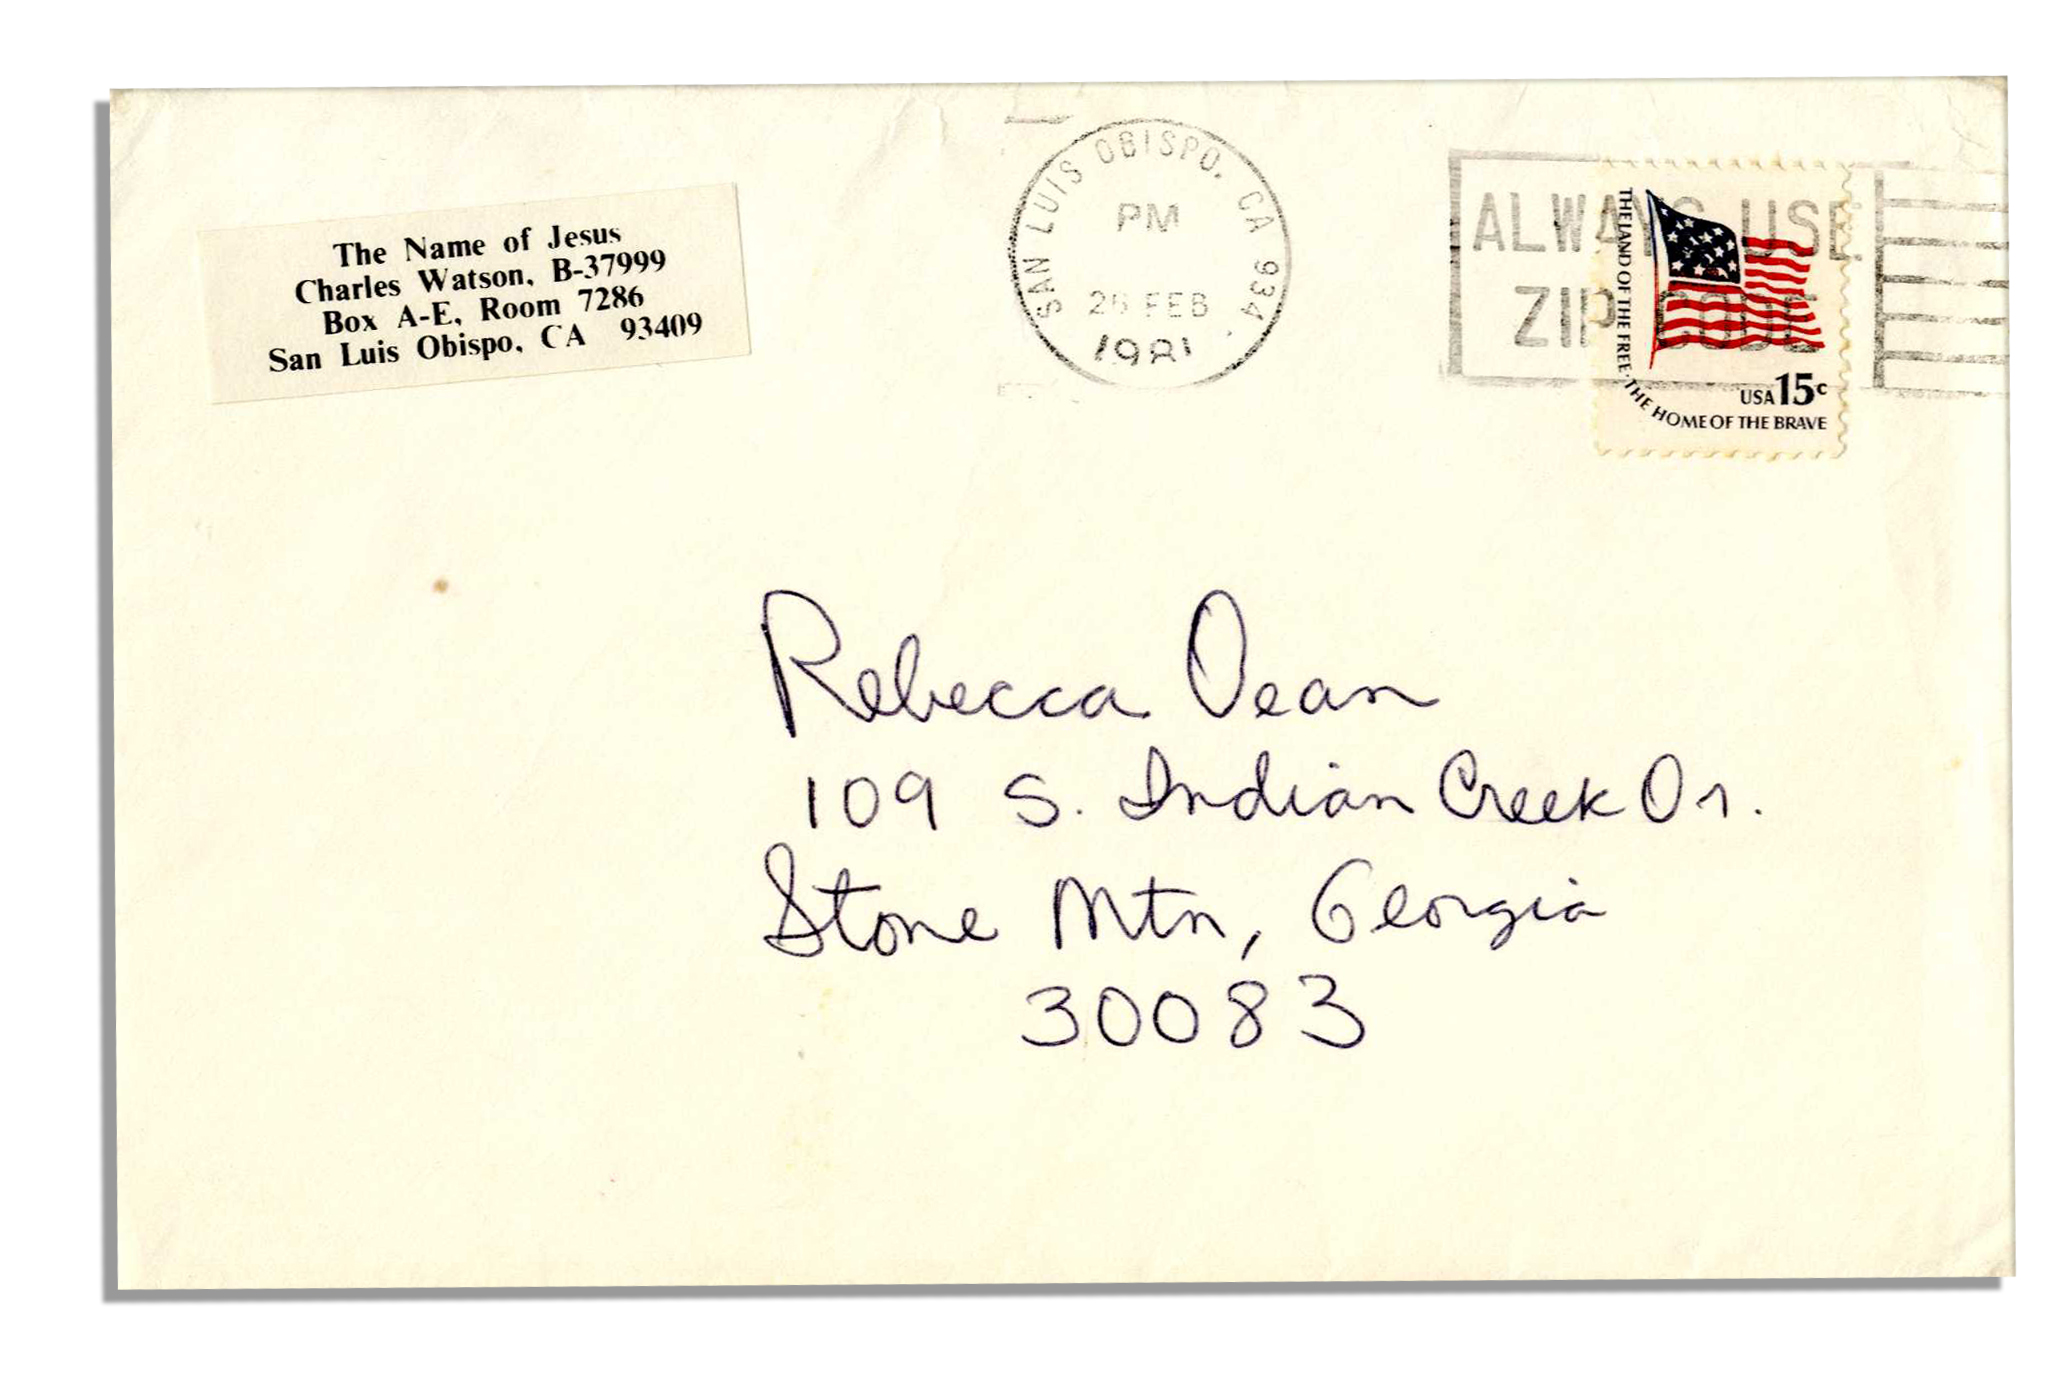 The Name of Jesus
Charles Watson, B-37999
Box A-E, Room 7286
San Luis Obispo, CA 93409
SAN LUIS OBISPO, CA 934
PM
FEB
1981
ALWAYS USE
ZIP CODE
THE LAND OF THE FREE·THE HOME OF THE BRAVE
USA 15c
Rebecca Dean
109 S. Indian Creek Dr.
Stone Mtn, Georgia
30083